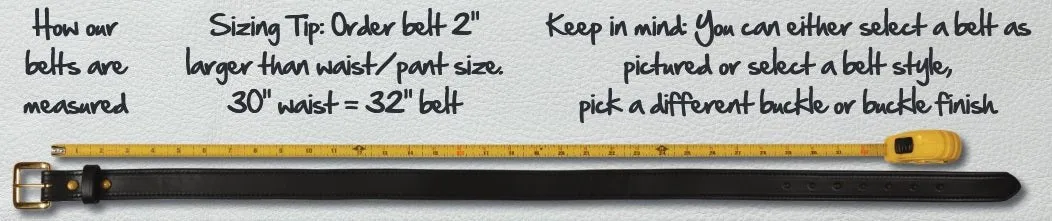 How our
belts are
measured
Sizing Tip: Order belt 2"
larger than waist/pant size.
30" waist = 32" belt
Keep in mind: You can either select a belt as
pictured or select a belt style,
pick a different buckle or buckle finish